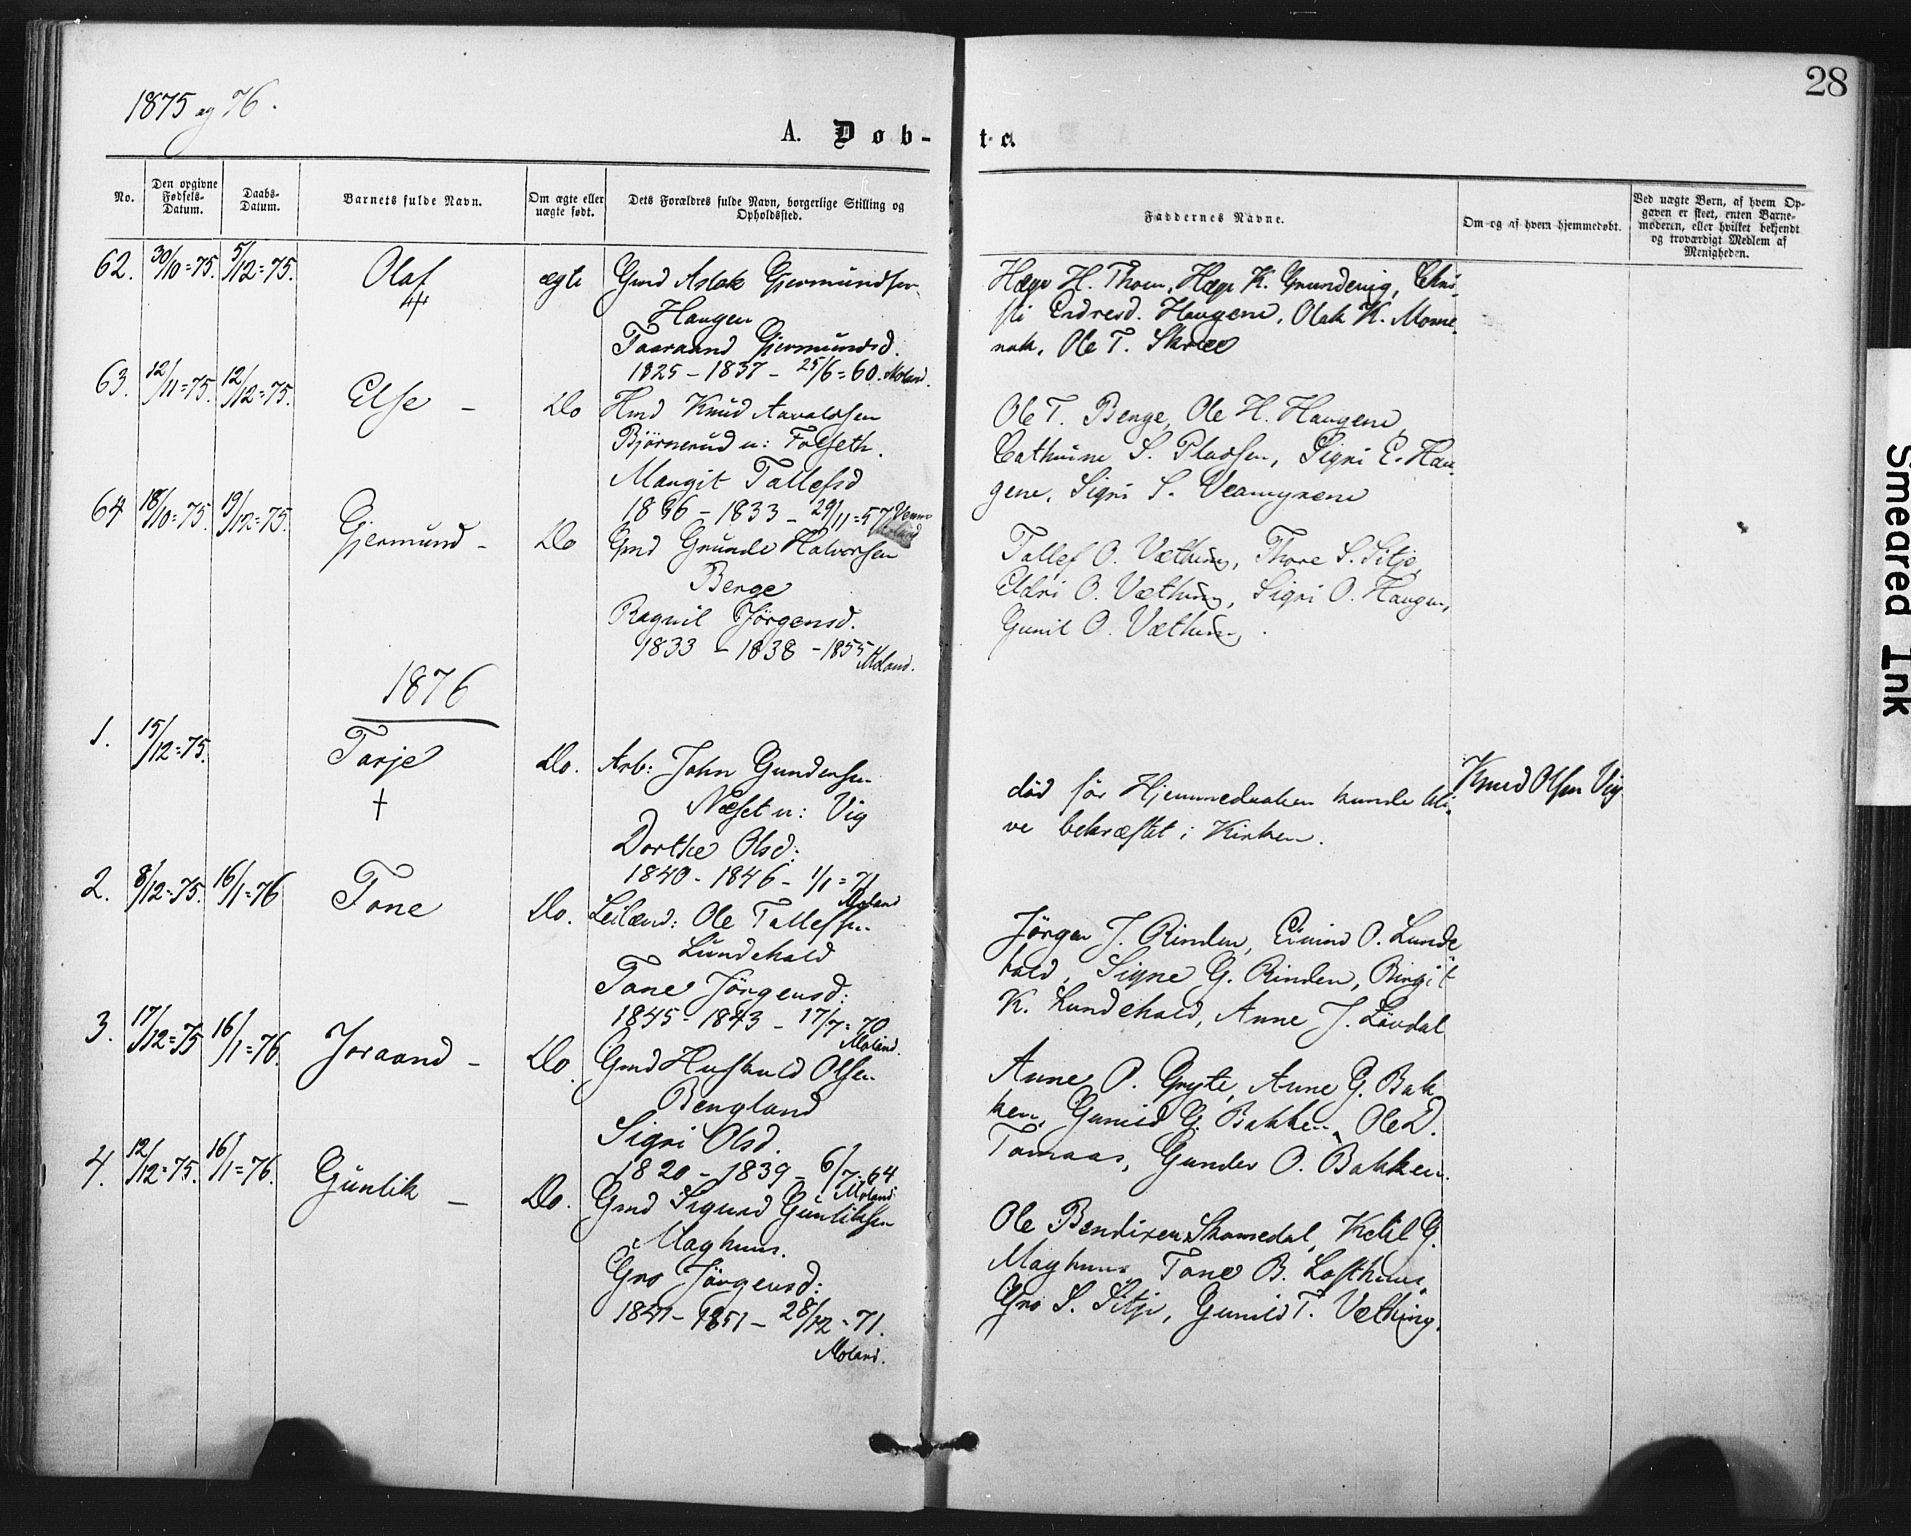 28
1875 og 76.
A. Døb-
te.
No.
Den opgivne Fødsels-Datum.
Daabs-Datum.
Barnets fulde Navn.
Om ægte eller uægte født.
Dets Forældres fulde Navn, borgerlige Stilling og Opholdssted.
Faddernes Navne.
Om og af hvem hjemmedøbt.
Ved uægte Børn, af hvem Opgaven er skeet, enten Barnemoderen, eller hvilket bekjendt og troværdigt Medlem af Menigheden.
62. 30/10=75. 5/12=75. Olaf ægte Gmd Aslak Gjermundsen
Haugen
Taaraand Gjermundsd.
1825 - 1837 - 25/6=60. Moland.
Hæge H. Thoen, Hæge K. Grundevig, Chri-
sti Endresd. Haugene, Olak K. Mome-
nak, Ole T. Skree
63. 12/11=75. 12/12=75. Else - Do Hmd Knud Aavaldsen
Bjørnerud u: Folseth.
Margit Tallefsd
1836 - 1833 - 29/11=57
Ole T. Benge, Ole H. Haugene,
Cathrine S. Pladsen, Sigri E. Hau-
gene, Sigri S. Veamyrene
64 18/10=75. 19/12=75. Gjermund - Do Gmd Grunde Halvorsen
Benge
Ragnil Jörgensd.
1833 - 1838 - 1855 Moland.
Tallef O. Væthing, Thore S. Sitje,
Eldri O. Væthing, Sigri O. Haugen,
Gunil O. Væthing.
1876
1. 15/12=75. Tarje † Do. Arb: John Gundersen
Næset u: Vig
Dorthe Olsd:
1840 - 1846 - 1/1=71
Moland
död før Hjemmedaaben kunde bli-
ve bekræftet i Kirken.
Knud Olsen Vig
2. 8/12=75. 16/1=76 Tone Do. Leilænd: Ole Tallefsen
Lundehald
Tone Jörgensd:
1845 - 1843 - 17/7=70
Moland.
Jörgen J. Rinden, Eivind O. Lunde-
hald, Signe G. Rinden, Birgit
K. Lundehald, Anne J. Lövdal
3. 17/12=75 16/1=76. Joraand - Do. Gmd Huskuld Olsen
Bengland
Sigri Olsd.
1820 - 1839 - 6/7=64
Moland
Anne O. Gryte, Anne G. Bak-
ken, Gunild G. Bakken, Ole D.
Tomaas, Gunder O. Bakken.
4. 12/12=75. 16/1=76. Günlik - Do. Gmd Sigurd Günliksen
Maghuus.
Gro Jörgensd:
1841 - 1851 - 28/12=71.
Moland.
Ole Bendixen Skomedal, Ketil G.
Maghuus, Tone B. Lofthuus,
Gro S. Sitje, Gunild T. Væthing.
Smeared Ink